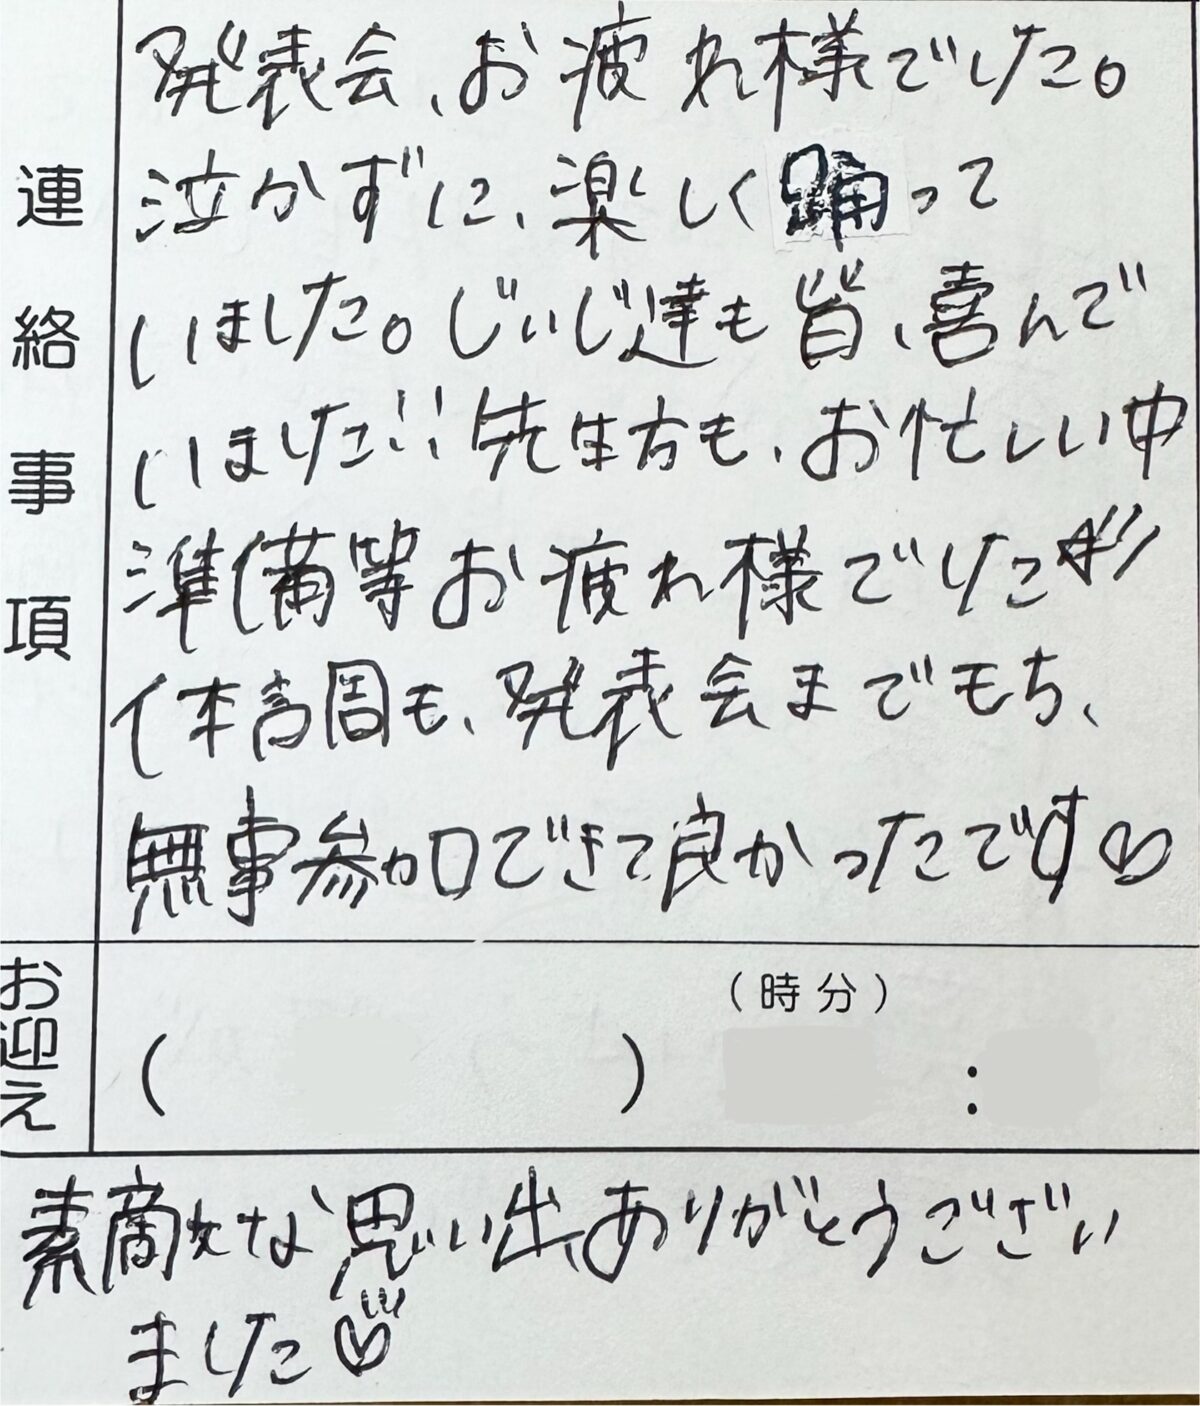 連絡事項
発表会、お疲れ様でした。
泣かずに、楽しく踊って
いました。じぃじ達も皆、喜んで
いました!! 先生方も、お忙しい中
準備等お疲れ様でした!!
体調も、発表会までもち、
無事参加できて良かったです♡
お迎え
(時分)
( ) :
素敵な思い出、ありがとうござい
ました♡